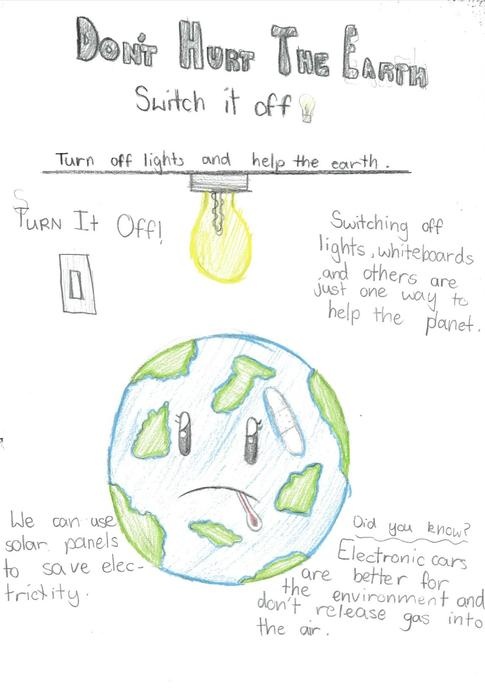 DON'T HURT THE EARTH
Switch it off
Turn off lights and help the earth.
TURN It Off!
Switching off
lights, whiteboards
and others are
just one way to
help the planet.
We can use
solar panels
to save elec-
tricity.
Did you know?
Electronic cars
are better for
the environment and
don't release gas into
the air.